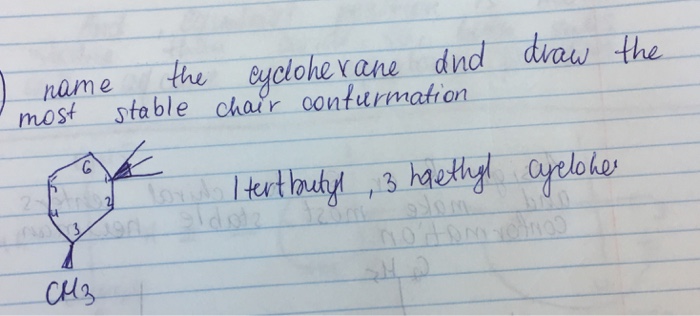 ) name the cyclohexane and draw the
most stable chair conturmation
6
1
5
2
1 tertbutyl , 3 methyl cyclohe
4
3
CH3